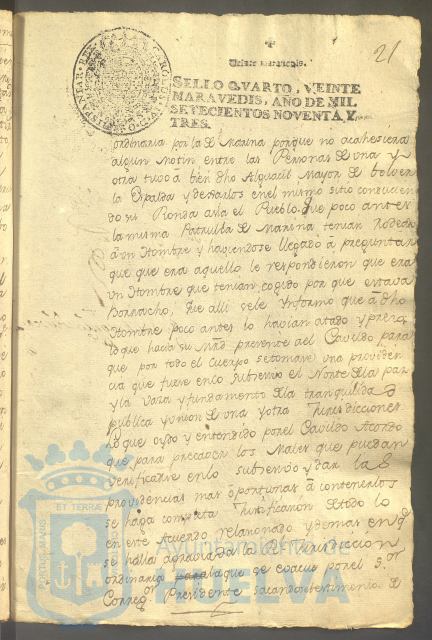 21
Veinte maravedis.
SELLO QVARTO, VEINTE
MARAVEDIS, AÑO DE MIL
SETECIENTOS NOVENTA Y
TRES.
CAROLUS
HISPANIAR. REX
ordinaria por la de Marina porque no acahesiera
algun Motin entre las Personas de una y
otra tuvo á bien dho Alguacil Mayor de bolver
la Espalda y dexarlos en el mismo sitio conducien
do su Ronda asia el Pueblo. Que poco antes
la misma Patrulla de Marina tenian Rodeado
á un Hombre y haviendose llegado á preguntar
que que era aquello le respondieron que era
un Hombre que tenian cogido por que estava
Borracho, que alli se le Ynformo que a dho
Hombre poco antes lo havian atado y
lo que hacia su Mrd presente al Cavildo para
que por todo el Cuerpo se tomase una providen
cia que fuese en lo subsesivo el Norte de la paz
y la vara y fundamento de la tranquilidad
publica y union de una y otra Jurisdicciones
Lo que oydo y entendido por el Cavildo Acordo
que para precaver los Males que puedan
verificarse en lo subsesivo y dar las
providencias mas oportunas á contenerlos
se haga completa Justificacion de todo lo
en este Acuerdo relacionado y demas en q
se halla agraviada la Rl Jurisdiccion
ordinaria la que se evacue por el Sor
Corregor Presidente sacandose testimonio de
PORTUS MARIS ET TERRAE
Ayuntamiento de
HUELVA